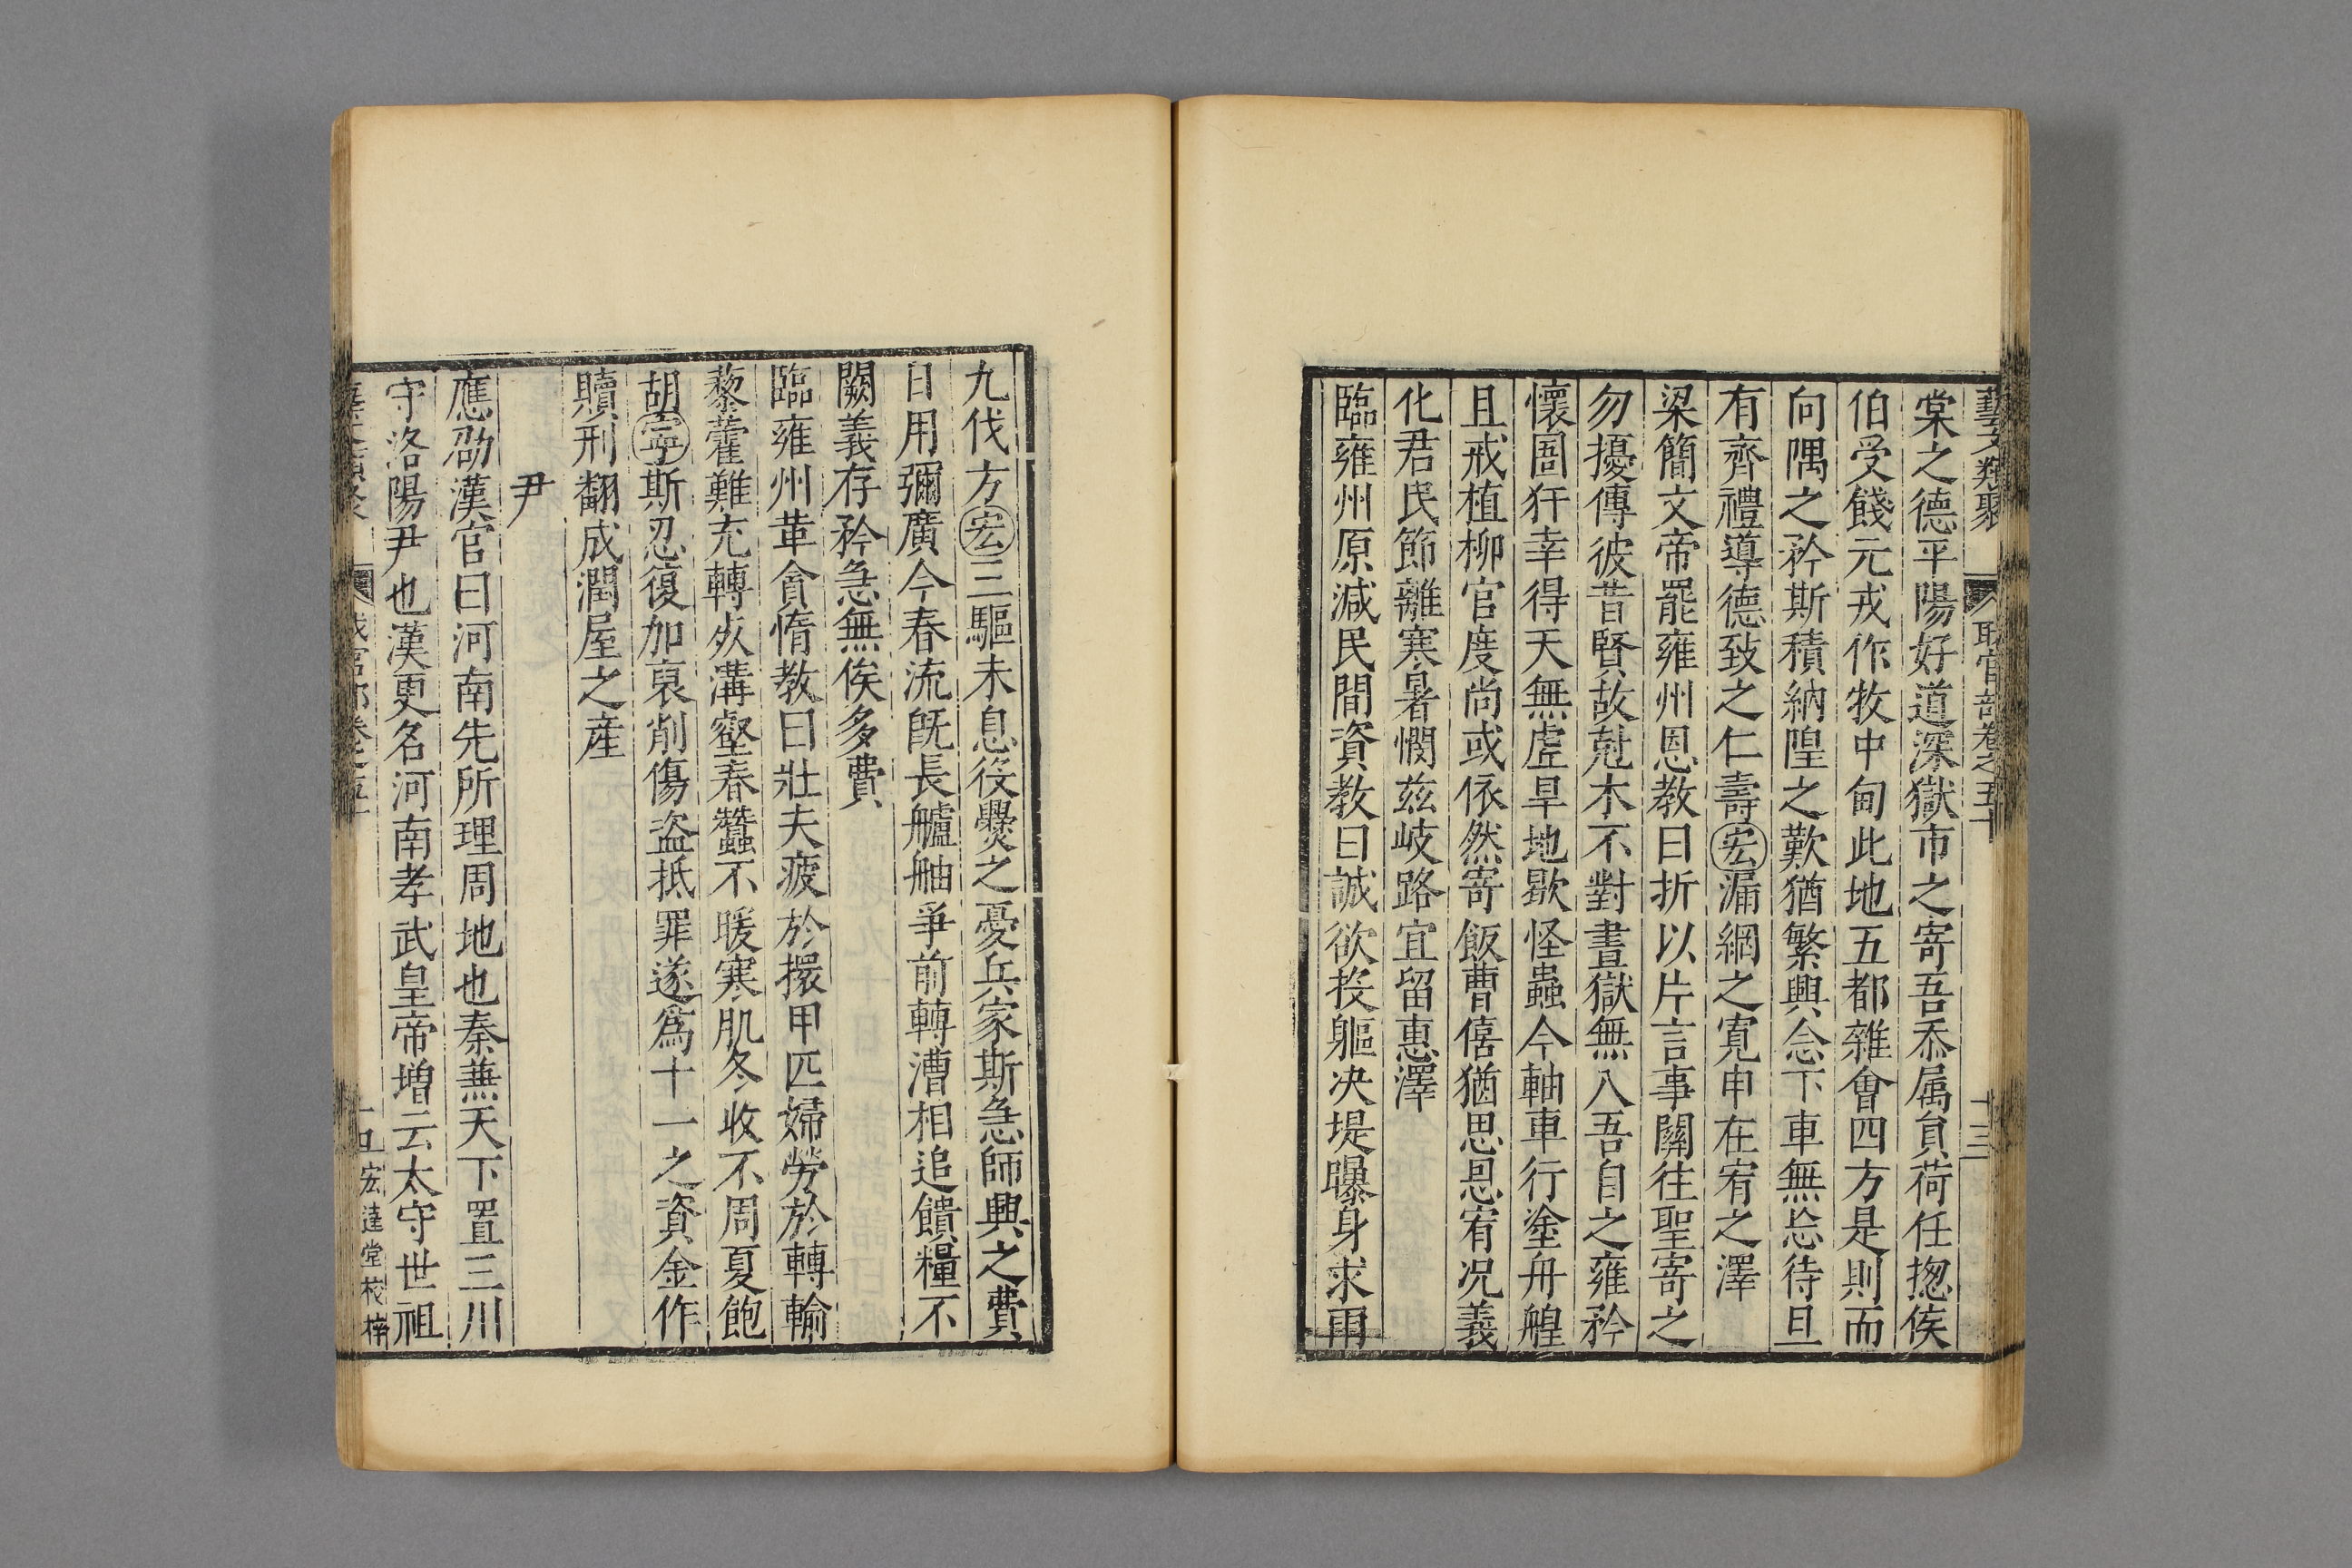 藝文類聚 职官部卷之五十 十三
棠之德平陽好道深獄市之寄吾忝属負荷任揔侯
伯受餞元戎作牧中甸此地五都雜會四方是則而
向隅之矜斯積納隍之歎猶繁興念下車無忘待旦
有齊禮導德致之仁壽宏漏網之寬申在宥之澤
梁簡文帝罷雍州恩教曰折以片言事關往聖寄之
勿擾傳彼昔賢故尅木不對晝獄無入吾自之雍矜
懷圄犴幸得天無虐旱地歇怪蟲今軸車行塗舟艎
且戒植柳官度尚或依然寄飯曹僖猶思恩宥况義
化君民節離寒暑憫兹岐路宜留惠澤
臨雍州原减民間資教曰誠欲投軀决堤曝身求雨
九伐方宏三驅未息役㸑之憂兵家斯急師興之費
日用彌廣今春流既長艫舳爭前轉漕相追饋糧不
闕義存矜急無俟多費
臨雍州革貪惰教曰壯夫疲於擐甲匹婦勞於轉輸
藜藿難充轉㱠溝壑春蠶不暖寒肌冬收不周夏飽
胡寧斯忍復加裒削傷盗抵罪遂爲十一之資金作
贖刑翻成潤屋之產
尹
應劭漢官曰河南先所理周地也秦蕪天下置三川
守洛陽尹也漢更名河南孝武皇帝増云太守世祖
宏達堂校梓